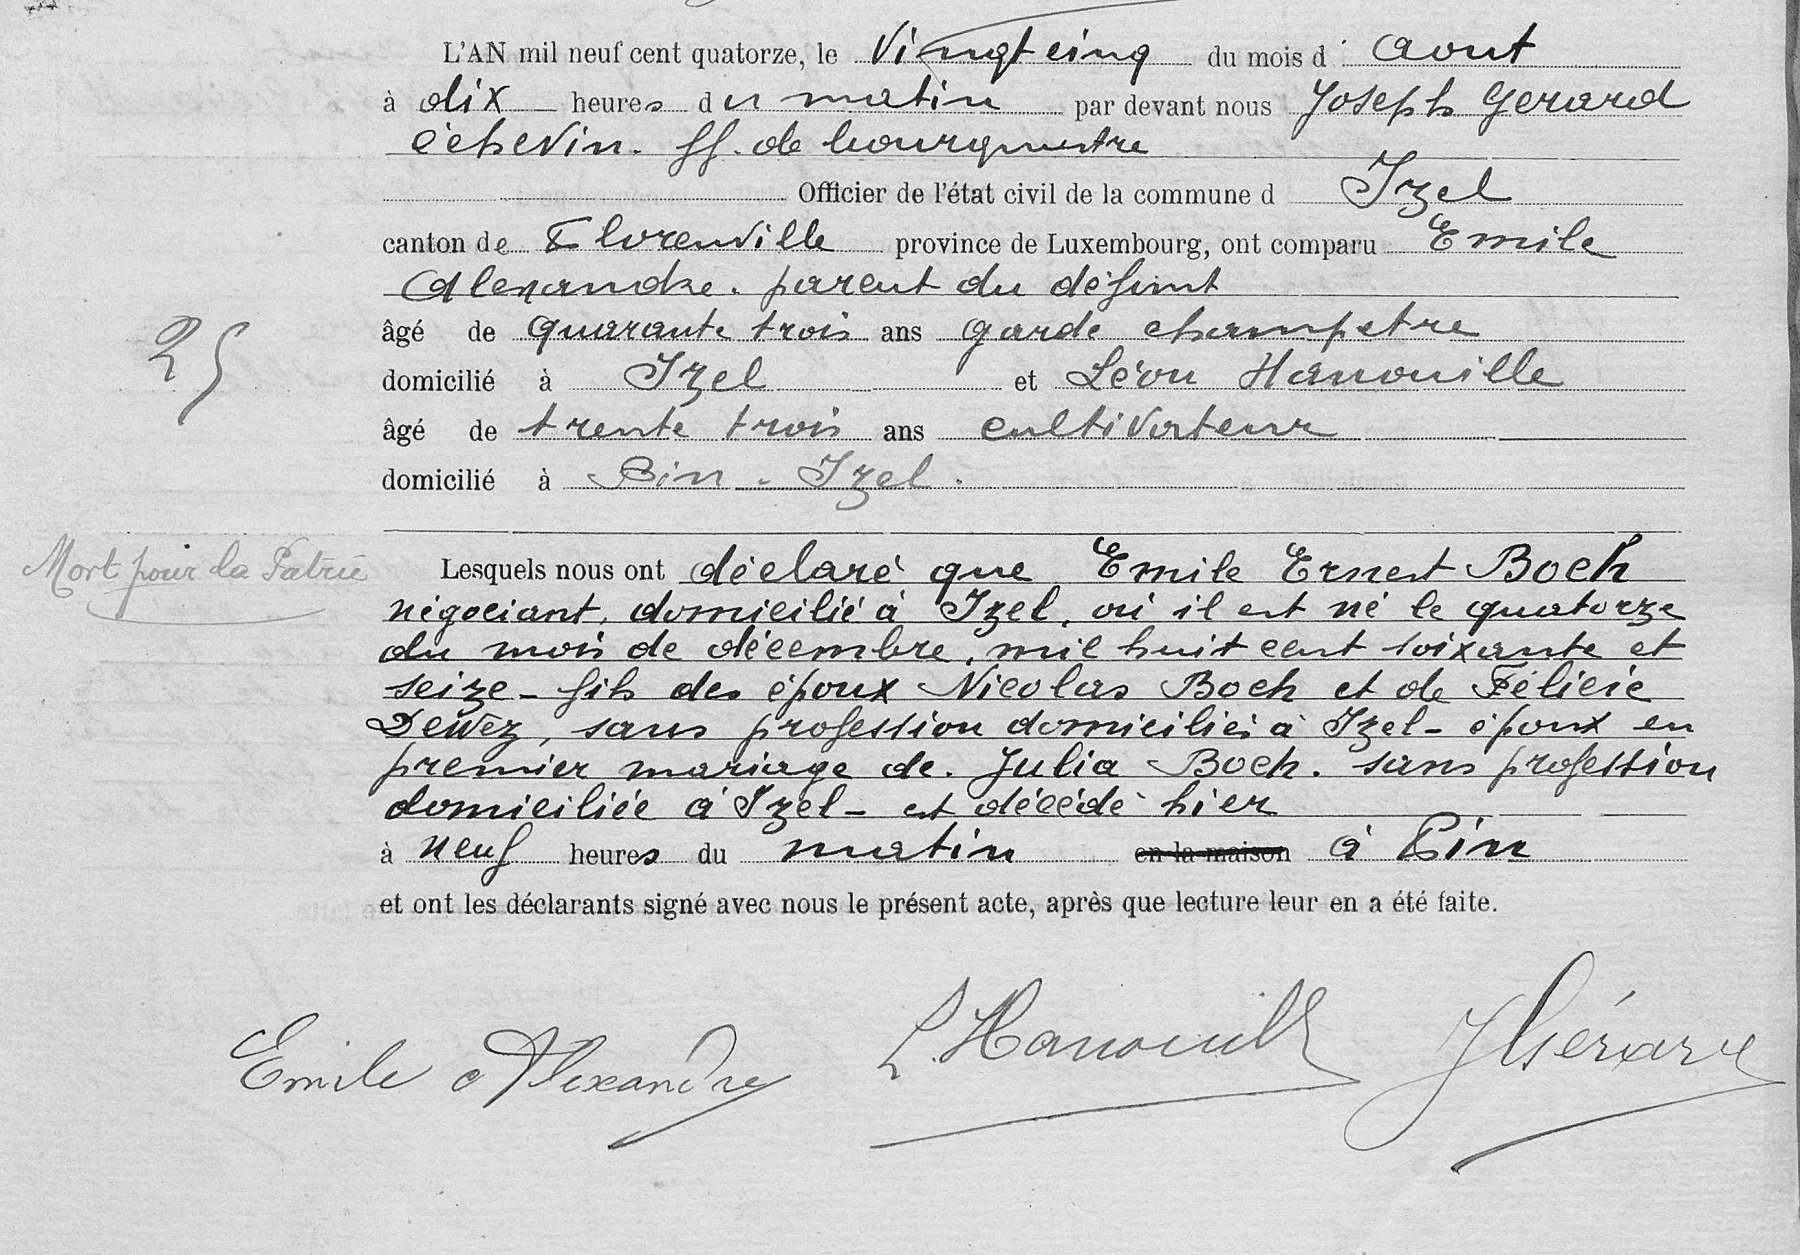 L'AN mil neuf cent quatorze, le vingt cinq du mois d'août
à dix heures du matin par devant nous Joseph Gerard
échevin. ff. de bourgmestre
Officier de l'état civil de la commune d Izel
canton de Florenville province de Luxembourg, ont comparu Emile
Alexandre. parent du défunt
âgé de quarante trois ans garde champetre
domicilié à Izel et Léon Hanouille
25
âgé de trente trois ans cultivateur
domicilié à Pin - Izel.
Mort pour la Patrie
Lesquels nous ont déclaré que Emile Ernest Boch
négociant, domicilié à Izel, où il est né le quatorze
du mois de décembre, mil huit cent soixante et
seize - fils des époux Nicolas Boch et de Félicie
Dewez, sans profession domiciliés à Izel - époux en
premier mariage de. Julia Boch. sans profession
domiciliée à Izel - est décédé hier
à neuf heures du matin en la maison à Pin
et ont les déclarants signé avec nous le présent acte, après que lecture leur en a été faite.
Emile Alexandre L. Hanouille J Gérard